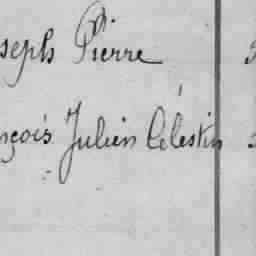 seph Pierre
nçois Julien Célestin